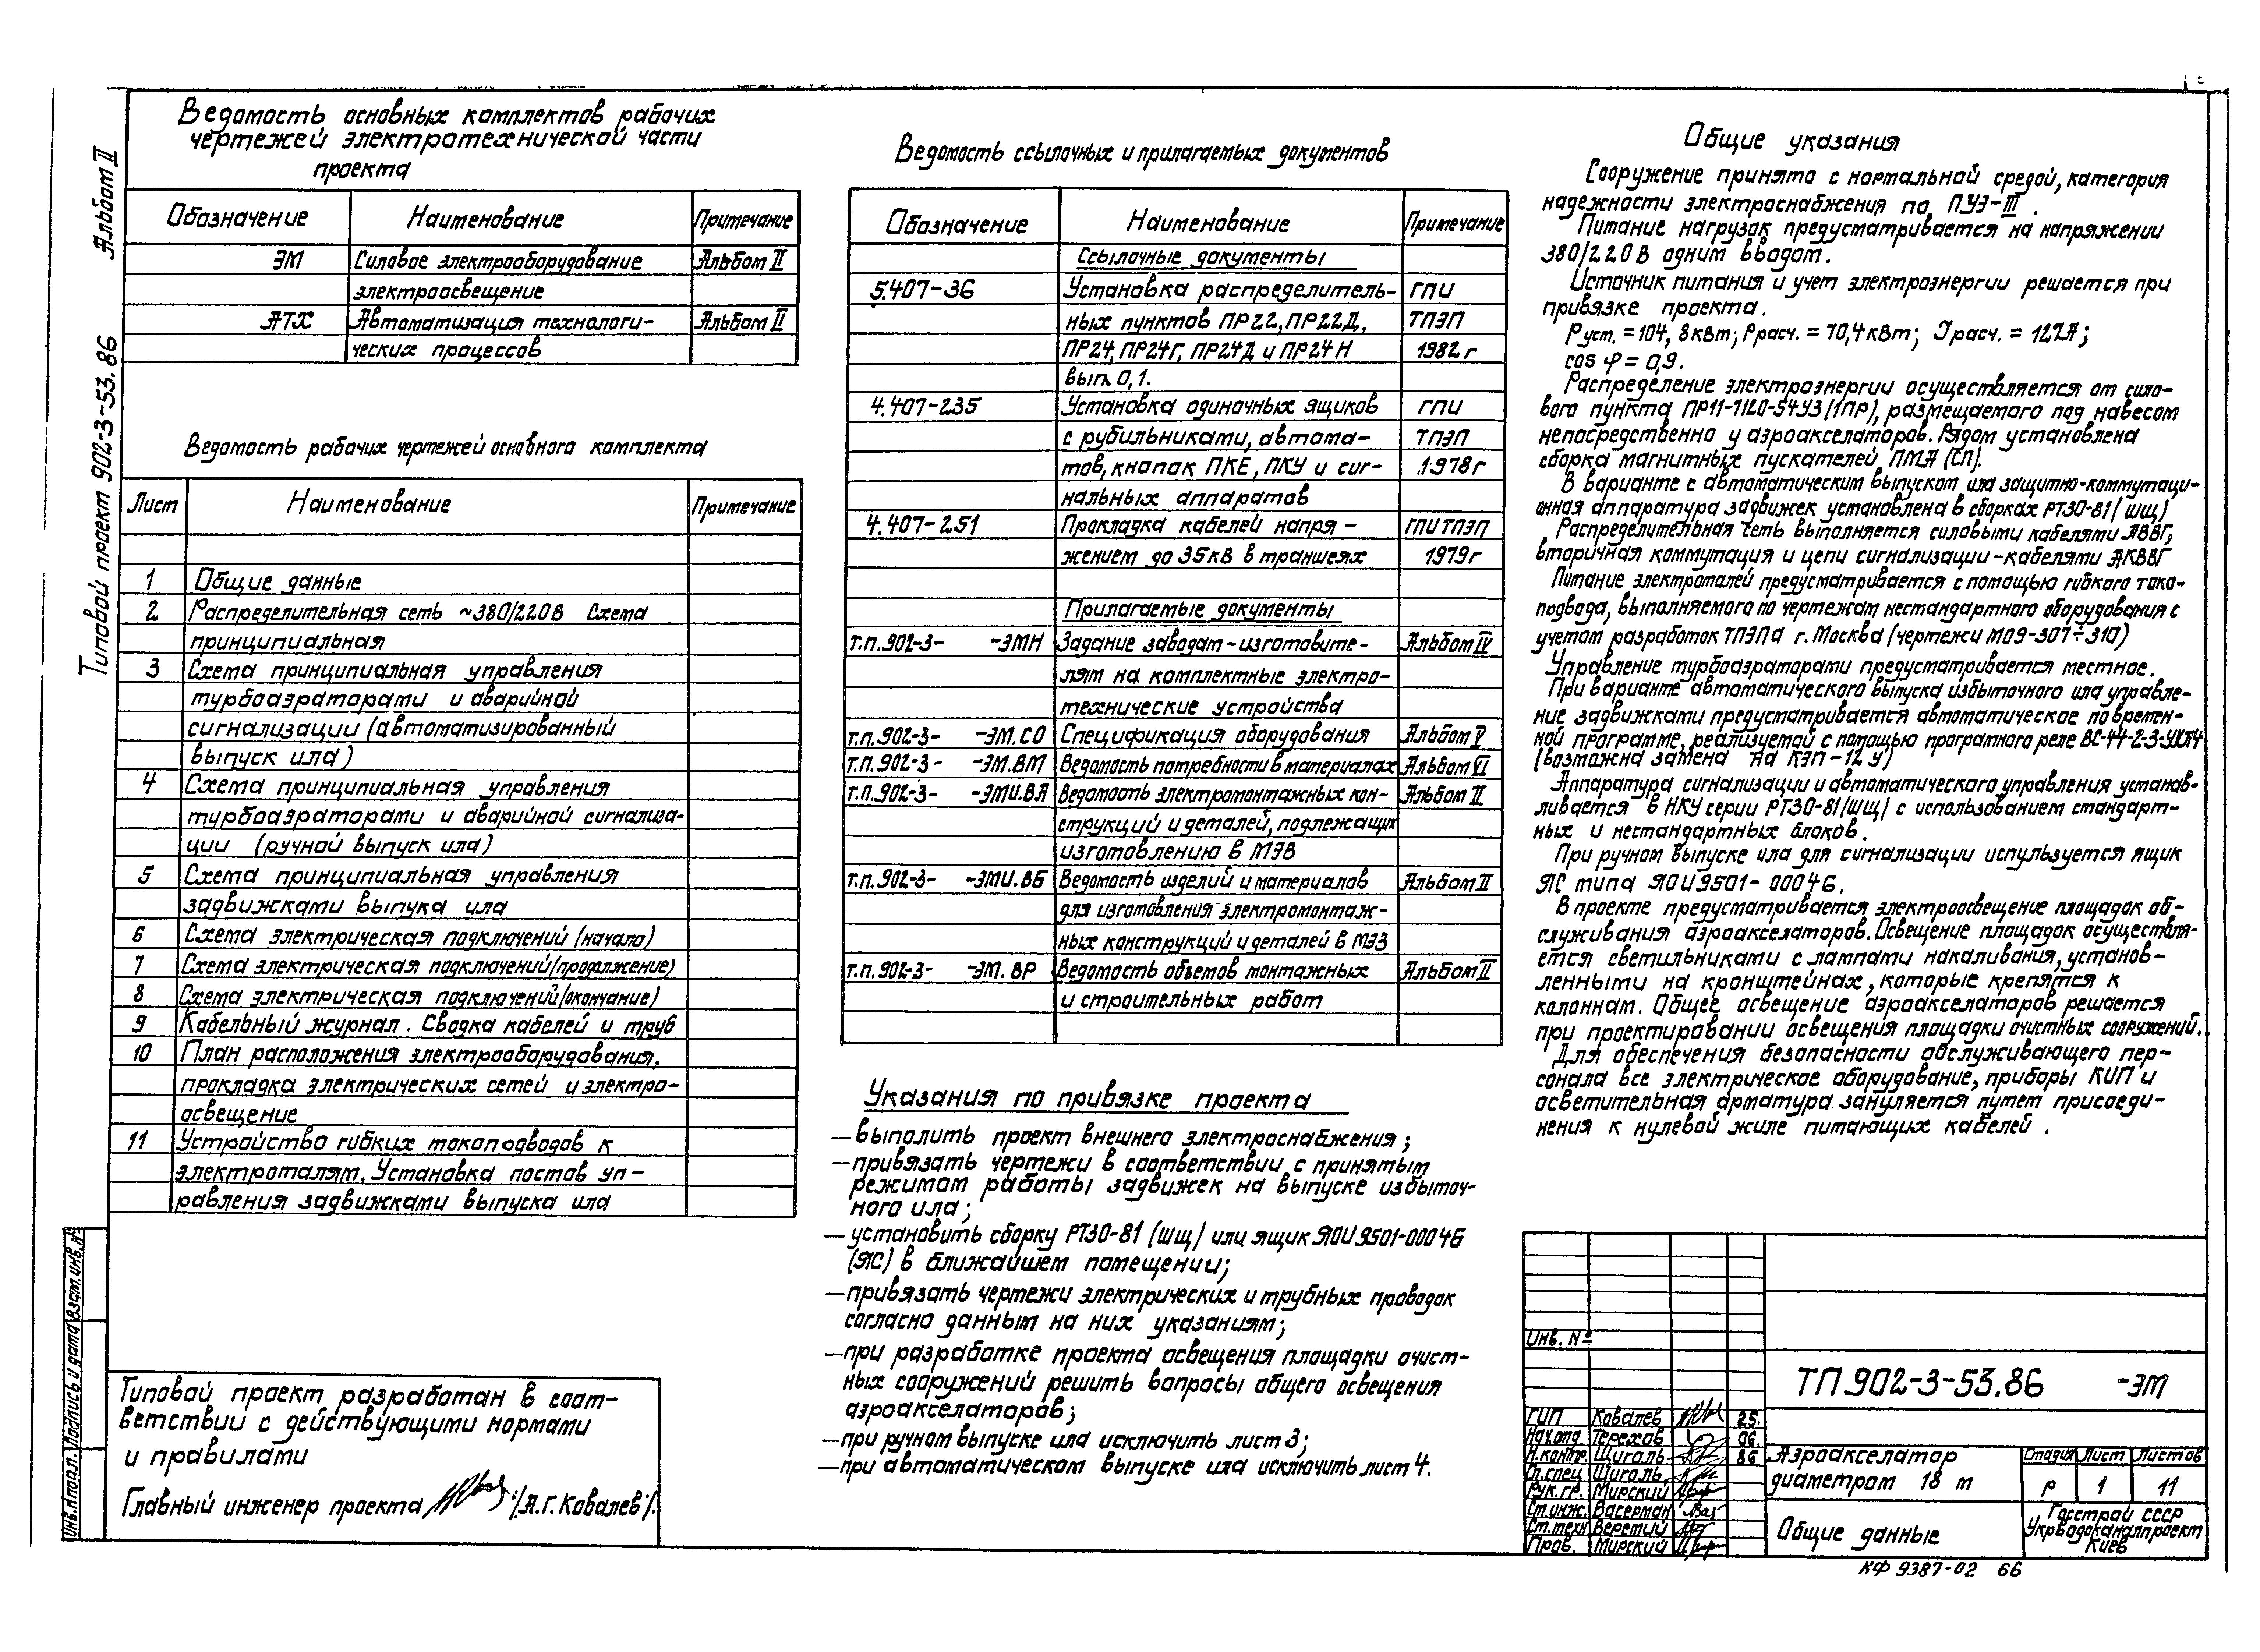 Альбом II
Типовой проект 902-3-53.86
Ведомость основных комплектов рабочих
чертежей электротехнической части
проекта
Обозначение Наименование Примечание
ЭМ Силовое электрооборудование Альбом II
электроосвещение
АТХ Автоматизация технологи- Альбом II
ческих процессов
Ведомость рабочих чертежей основного комплекта
Лист Наименование Примечание
1 Общие данные
2 Распределительная сеть ~380/220В Схема
принципиальная
3 Схема принципиальная управления
турбоаэраторами и аварийной
сигнализации (автоматизированный
выпуск ила)
4 Схема принципиальная управления
турбоаэраторами и аварийной сигнализа-
ции (ручной выпуск ила)
5 Схема принципиальная управления
задвижками выпука ила
6 Схема электрическая подключений (начало)
7 Схема электрическая подключений (продолжение)
8 Схема электрическая подключений (окончание)
9 Кабельный журнал. Сводка кабелей и труб
10 План расположения электрооборудования,
прокладка электрических сетей и электро-
освещение
11 Устройство гибких токоподводов к
электроталям. Установка постов уп-
равления задвижками выпуска ила
Типовой проект разработан в соот-
ветствии с действующими нормами
и правилами
Главный инженер проекта /А.Г.Ковалев/.
Инв.N подл. Подпись и дата Взам.инв.№
Ведомость ссылочных и прилагаемых документов
Обозначение Наименование Примечание
Ссылочные документы
5.407-36 Установка распределитель- ГПИ
ных пунктов ПР22, ПР22Д, ТПЭП
ПР24, ПР24Г, ПР24Д и ПР24Н 1982г
вып. 0,1.
4.407-235 Установка одиночных ящиков ГПИ
с рубильниками, автома- ТПЭП
тов, кнопок ПКЕ, ПКУ и сиг- 1978г
нальных аппаратов
4.407-251 Прокладка кабелей напря- ГПИ ТПЭП
жением до 35кВ в траншеях 1979г
Прилагаемые документы
т.п.902-3- -ЭМН Задание заводам-изготовите- Альбом IV
лям на комплектные электро-
технические устройства
т.п.902-3- -ЭМ.СО Спецификация оборудования Альбом V
т.п.902-3- -ЭМ.ВМ Ведомость потребности в материалах Альбом VI
т.п.902-3- -ЭМИ.ВА Ведомость электромонтажных кон- Альбом II
струкций и деталей, подлежащих
изготовлению в МЭЗ
т.п.902-3- -ЭМИ.ВБ Ведомость изделий и материалов Альбом II
для изготовления электромонтаж-
ных конструкций и деталей в МЭЗ
т.п.902-3- -ЭМ.ВР Ведомость объемов монтажных Альбом II
и строительных работ
Указания по привязке проекта
— выполить проект внешнего электроснабжения;
— привязать чертежи в соответствии с принятым
режимом работы задвижек на выпуске избыточ-
ного ила;
— установить сборку РТ30-81 (ШЩ) или ящик ЯОИ9501-0004Б
(ЯС) в ближайшем помещении;
— привязать чертежи электрических и трубных проводок
согласно данным на них указаниям;
— при разработке проекта освещения площадки очист-
ных сооружений решить вопросы общего освещения
аэроакселаторов;
— при ручном выпуске ила исключить лист 3;
— при автоматическом выпуске ила исключить лист 4.
Общие указания
Сооружение принято с нормальной средой, категория
надежности электроснабжения по ПУЭ-III.
Питание нагрузок предусматривается на напряжении
380/220В одним вводом.
Источник питания и учет электроэнергии решается при
привязке проекта.
Руст. = 104,8кВт; Ррасч. = 70,4кВт; Iрасч. = 127А;
cos φ = 0,9.
Распределение электроэнергии осуществляется от сило-
вого пункта ПР11-7120-54У3 (1ПР), размещаемого под навесом
непосредственно у аэроакселаторов. Рядом установлена
сборка магнитных пускателей ПМА (СП).
В варианте с автоматическим выпуском ила защитно-коммутаци-
онная аппаратура задвижек установлена в сборках РТ30-81 (ШЩ)
Распределительная сеть выполняется силовыми кабелями АВВГ,
вторичная коммутация и цепи сигнализации - кабелями АКВВГ
Питание электроталей предусматривается с помощью гибкого токо-
подвода, выполняемого по чертежам нестандартного оборудования с
учетом разработок ТПЭПа г. Москва (чертежи М09-307÷310)
Управление турбоаэраторами предусматривается местное.
При варианте автоматического выпуска избыточного ила управле-
ние задвижками предусматривается автоматическое по времен-
ной программе, реализуемой с помощью програмного реле ВС-44-2-3-УХЛ4
(возможна замена на КЭП-12У)
Аппаратура сигнализации и автоматического управления устанав-
ливается в НКУ серии РТ30-81 (ШЩ) с использованием стандарт-
ных и нестандартных блоков.
При ручном выпуске ила для сигнализации используется ящик
ЯС типа ЯОИ9501-0004Б.
В проекте предусматривается электроосвещение площадок об-
служивания аэроакселаторов. Освещение площадок осуществля-
ется светильниками с лампами накаливания, установ-
ленными на кронштейнах, которые крепятся к
колоннам. Общее освещение аэроакселаторов решается
при проектировании освещения площадки очистных сооружений.
Для обеспечения безопасности обслуживающего пер-
сонала все электрическое оборудование, приборы КИП и
осветительная арматура зануляется путем присоеди-
нения к нулевой жиле питающих кабелей.
Инв. №
ТП 902-3-53.86 -ЭМ
ГИП Ковалев 25.
Нач.отд. Терехов 06.
Н.контр. Щиголь 86
Гл.спец Щиголь
Рук.гр. Мирский
Ст.инж. Васерман
Ст.техн Веретий
Пров. Мирский
Аэроакселатор
диаметром 18 м
Стадия Лист Листов
Р 1 11
Общие данные
Госстрой СССР
Укрводоканалпроект
Киев
КФ 9387-02 66